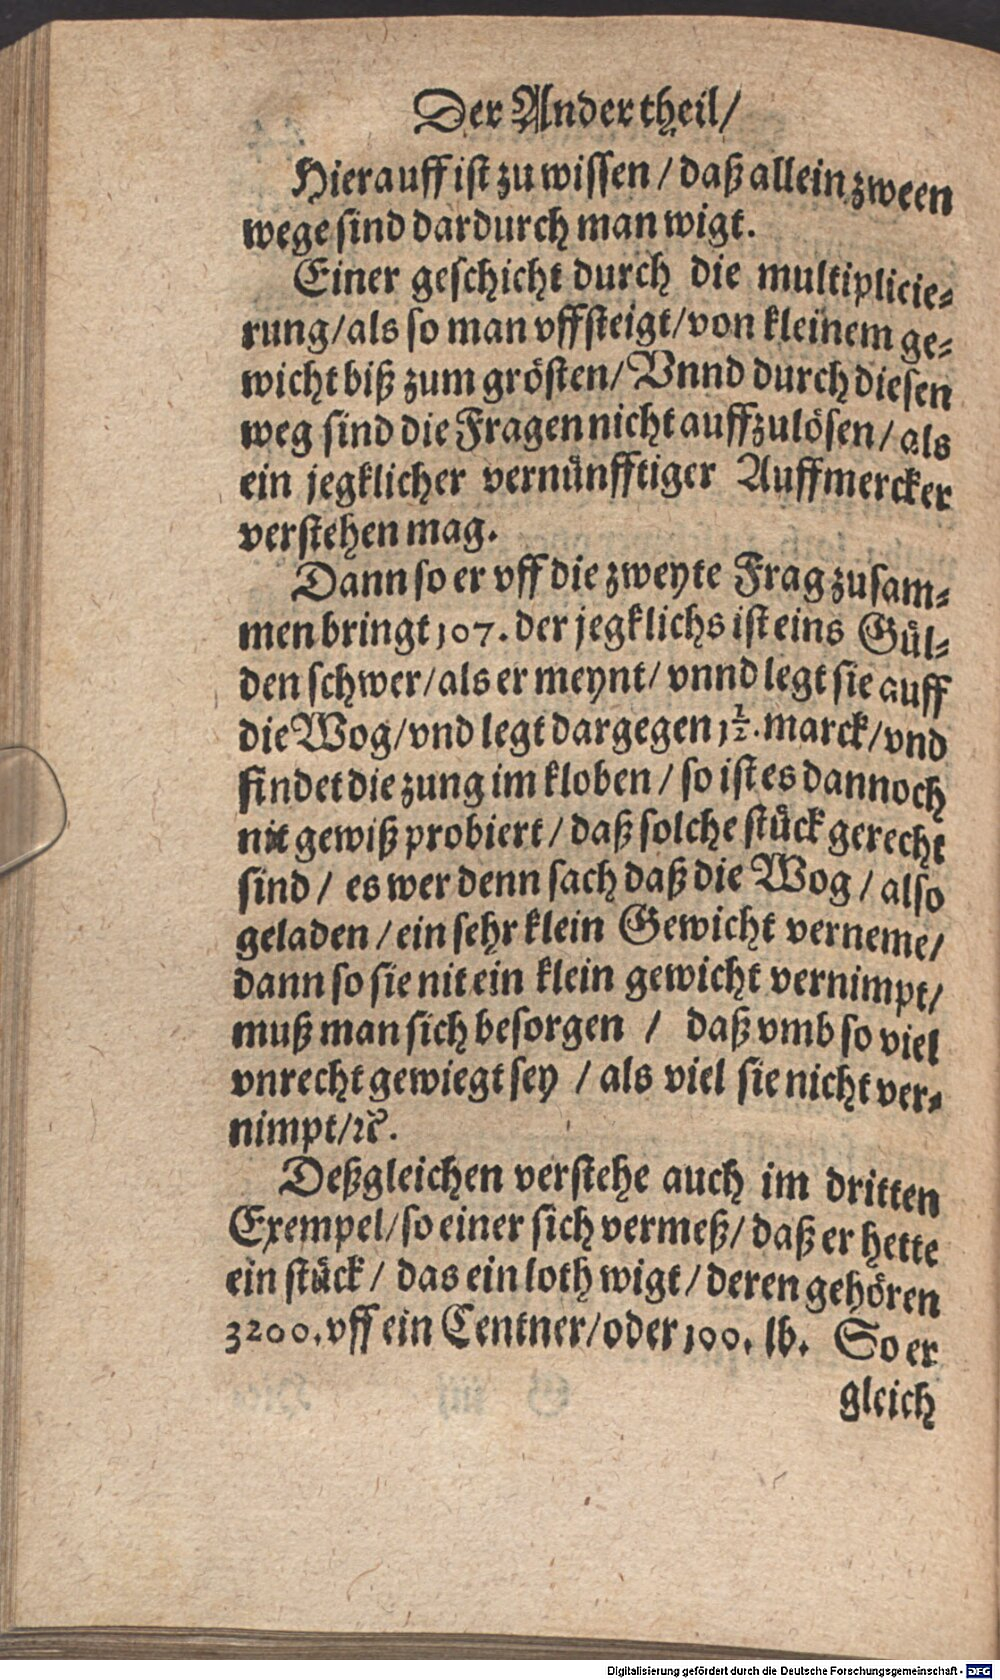 Der Ander theil/
Hierauff ist zu wissen / daß allein zween
wege sind dardurch man wigt.
Einer geschicht durch die multiplicie⸗
rung/als so man vffsteigt/von kleinem ge⸗
wicht biß zum grösten/ Vnnd durch diesen
weg sind die Fragen nicht auffzulösen/ als
ein jegklicher vernünfftiger Auffmercker
verstehen mag.
Dann so er vff die zweyte Frag zusam⸗
men bringt 107. der jegklichs ist eins Gül⸗
den schwer/als er meynt/ vnnd legt sie auff
die Wog/vnd legt dargegen 1½. marck/vnd
findet die zung im kloben / so ist es dannoch
nit gewiß probiert / daß solche stück gerecht
sind / es wer denn sach daß die Wog / also
geladen / ein sehr klein Gewicht verneme/
dann so sie nit ein klein gewicht vernimpt/
muß man sich besorgen / daß vmb so viel
vnrecht gewiegt sey / als viel sie nicht ver⸗
nimpt/ꝛc̃.
Deßgleichen verstehe auch im dritten
Exempel/so einer sich vermeß/ daß er hette
ein stück / das ein loth wigt/ deren gehören
3200. vff ein Centner/oder 100. lb. So er
gleich
Digitalisierung gefördert durch die Deutsche Forschungsgemeinschaft - DFG